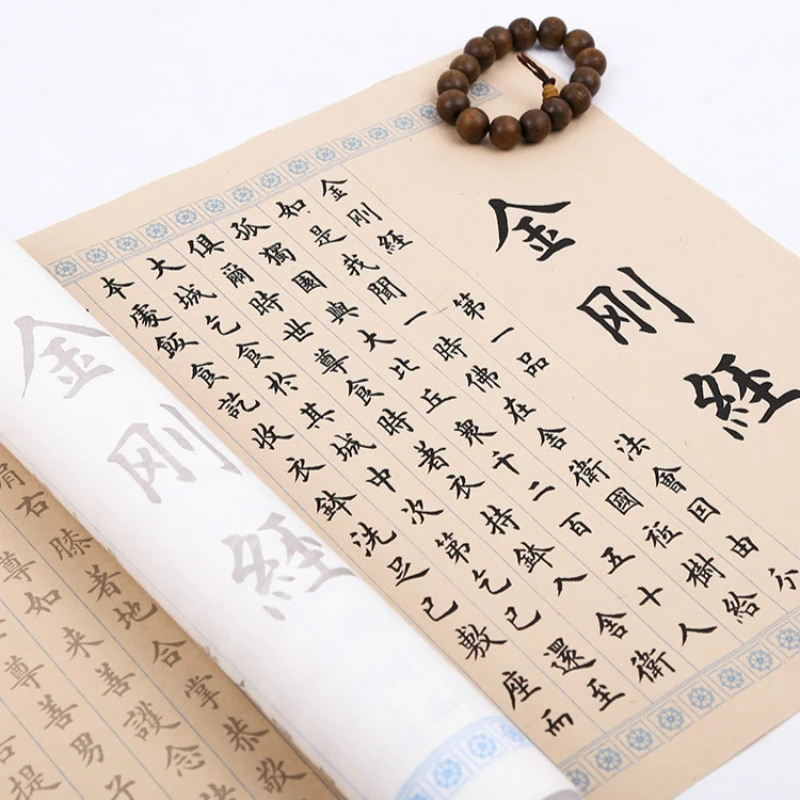 金剛經
金剛經 第一品 法會因由分
如是我聞一時佛在舍衛國祇樹給
孤獨園與大比丘衆千二百五十人
俱爾時世尊食時著衣持鉢入舍衛
大城乞食於其城中次第乞已還至
本處飯食訖收衣鉢洗足已敷座而
金剛經
肩右膝著地合掌恭敬
尊如來善護念
尊善男子
提